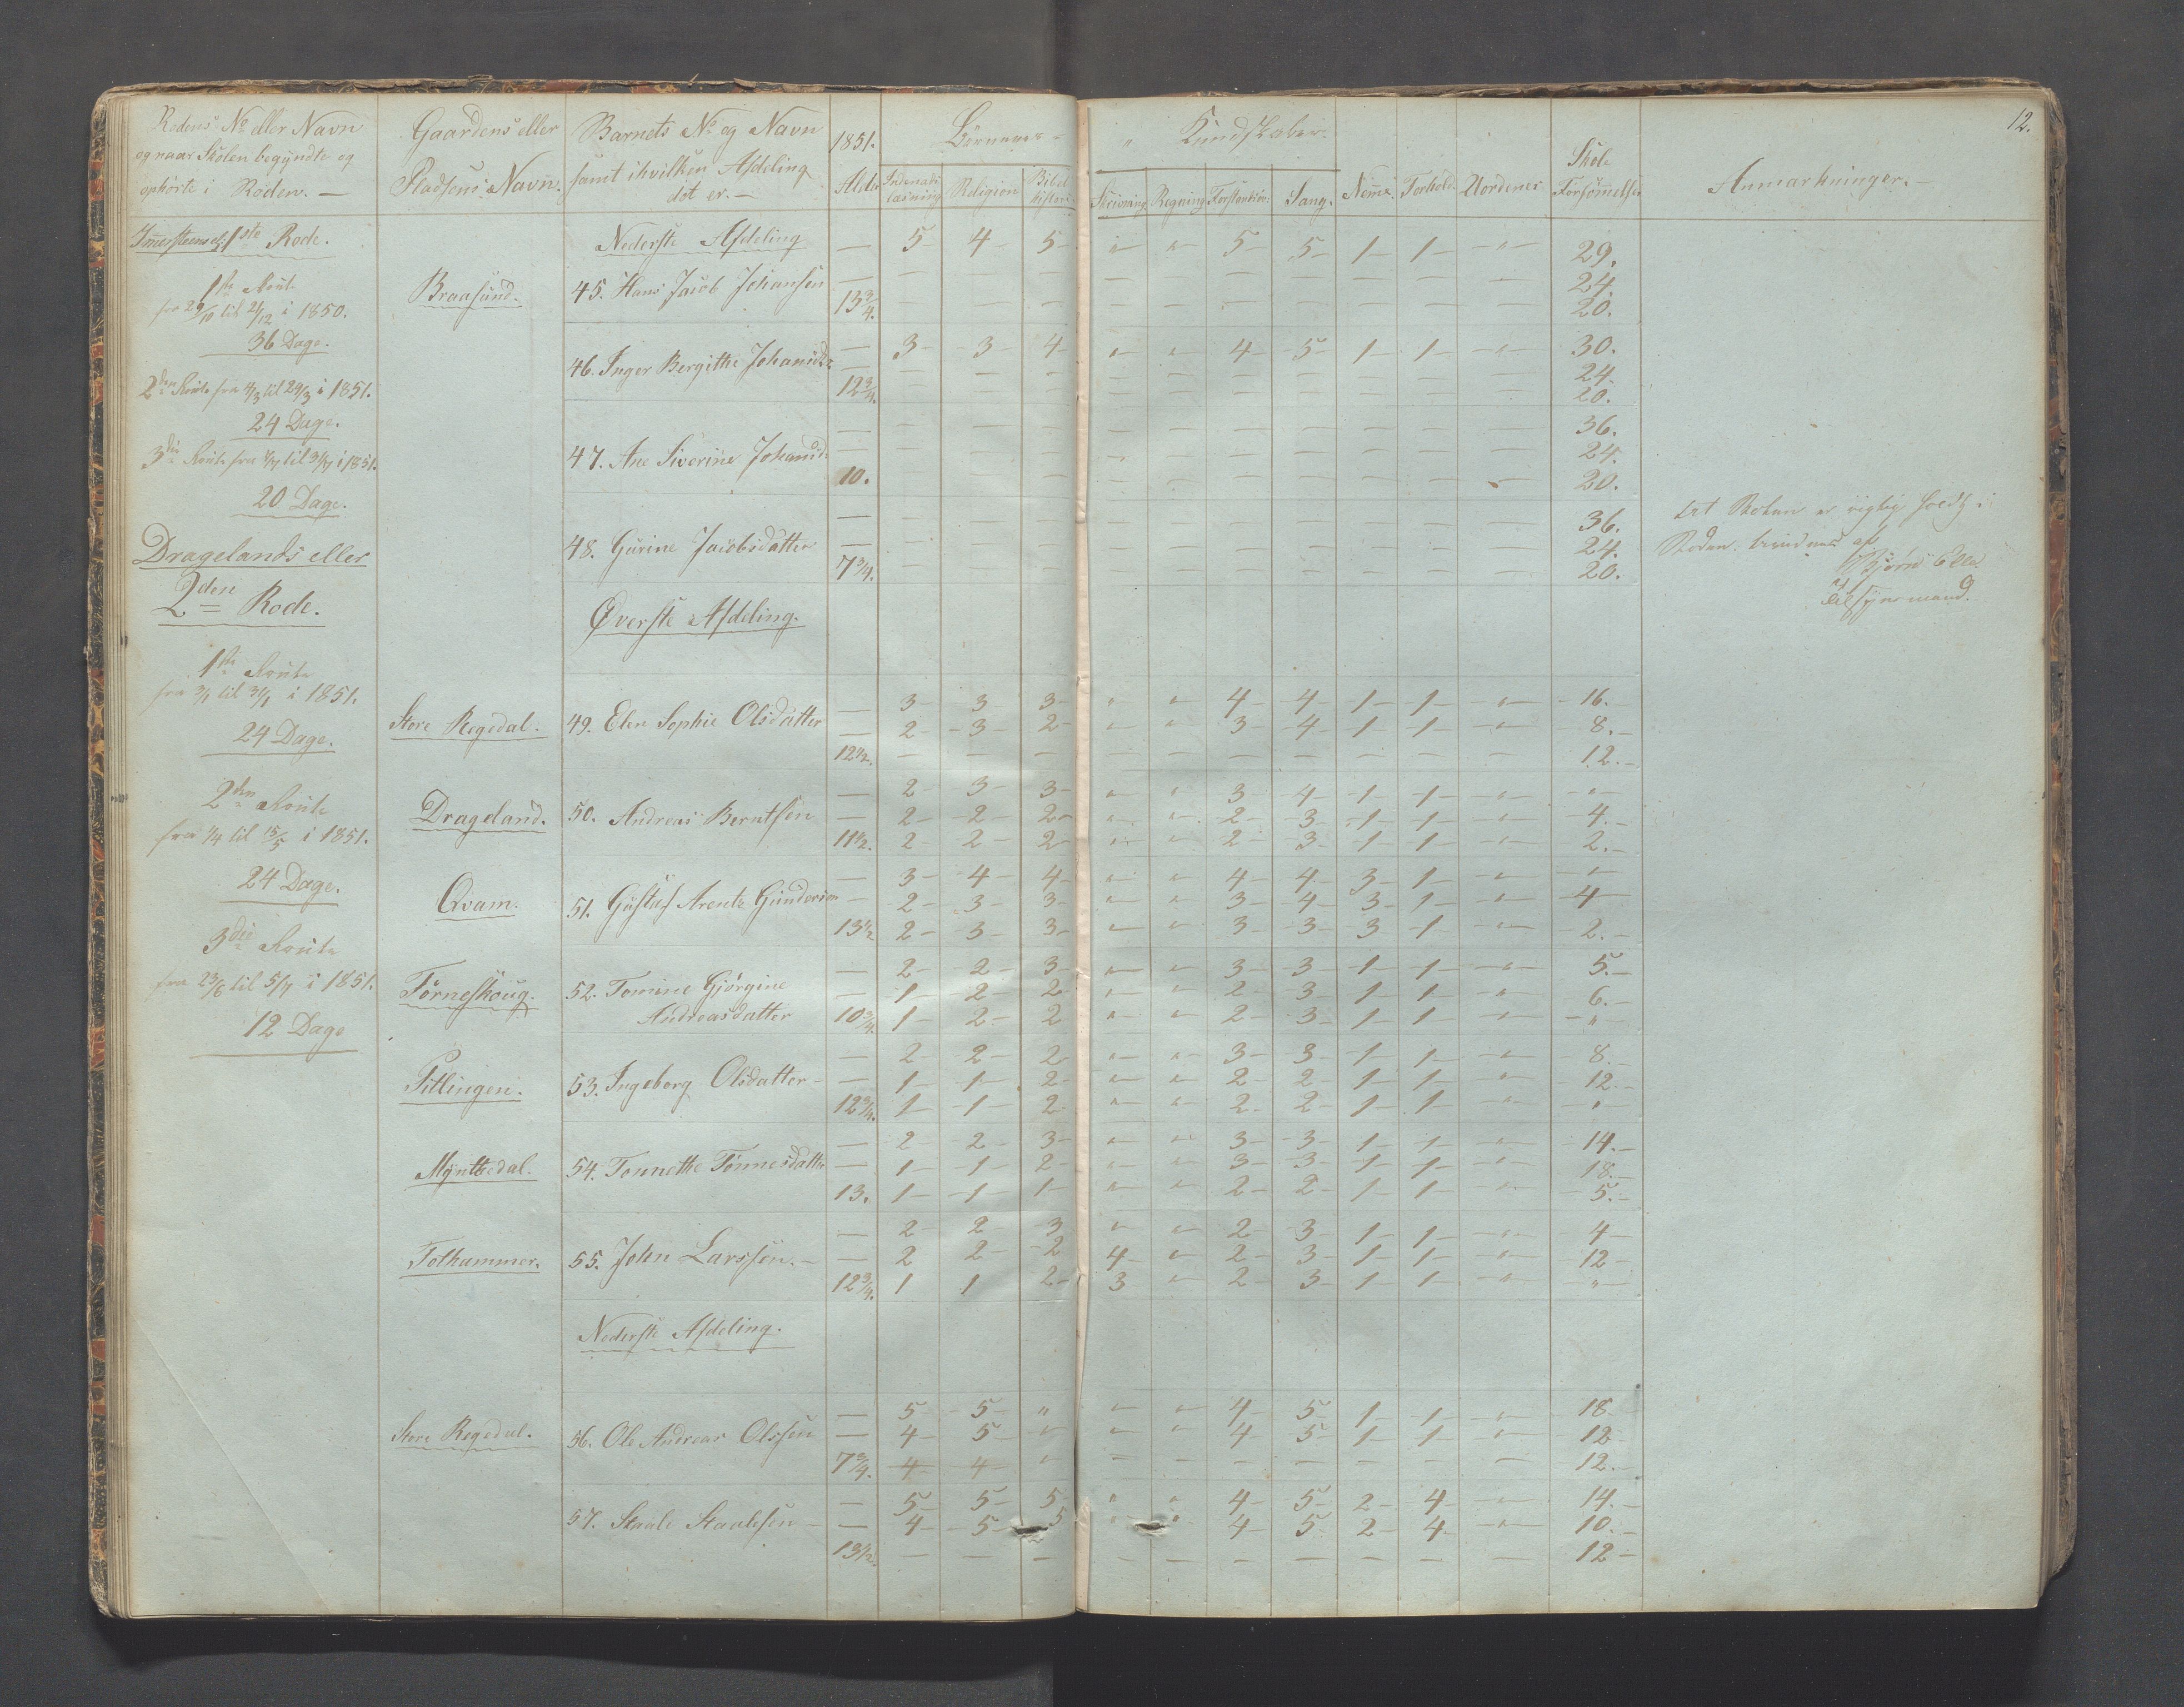 12.
Rodens No eller Navn | Gaardens eller | Barnets No og Navn | 1851. | Börnenes | " Kundskaber. | Skole
og naar Skolen begyndte og | Pladsens Navn. | samt i hvilken Afdeling | Alder | Indenadslæsning | Religion | Bibelhistorie | Skrivning | Regning | Forstandsöv: | Sang. | Nemme. | Forhold. | Uordener | Forsömmelser | Anmærkninger.
ophörte i Roden. — | det er. —
1ste Rode. | Nederste Afdeling | — | 5 | 4 | 5 | " | " | 5 | 5 | 1 | 1 | " | 29.
1ste Route | Braasund. | 45. Hans Jacob Johansen | — | — | — | — | — | — | — | — | — | — | — | 24.
fra 29/10 til 2/12 i 1850. | 13 3/4. | — | — | — | — | — | — | — | — | — | — | 20.
36 Dage. | 46. Inger Bergithe Johansd. | — | 3 | 3 | 4 | " | " | 4 | 5 | 1 | 1 | " | 30.
— | — | — | — | — | — | — | — | — | — | — | 24.
2den Route fra 4/3 til 29/3 i 1851. | 12 3/4. | — | — | — | — | — | — | — | — | — | — | 20.
24 Dage. | 47. Ane Siverine Johansd. | — | — | — | — | — | — | — | — | — | — | — | 36.
3die Route fra til 31/7 i 1851. | — | — | — | — | — | — | — | — | — | — | — | 24.
10. | — | — | — | — | — | — | — | — | — | — | 20.
20 Dage. | 48. Gurine Jacobsdatter | — | — | — | — | — | — | — | — | — | — | — | 36. | at Skolen er rigtig holdt i
Dragelands eller | — | — | — | — | — | — | — | — | — | — | — | 24. | Roden bevidnes af
7 3/4. | — | — | — | — | — | — | — | — | — | — | 20. | Björn
Tilsynsmand.
2den Rode. | Øverste Afdeling.
1ste Route
fra 3/1 til 30/1 i 1851. | Store Regedal. | 49. Elen Sophie Olsdatter | — | 3 | 3 | 3 | " | " | 4 | 4 | 1 | 1 | " | 16.
24 Dage. | — | 2 | 3 | 2 | " | " | 3 | 4 | 1 | 1 | " | 8.
12 1/2. | — | — | — | — | — | — | — | — | — | — | 12.
2den Route | Drageland. | 50. Andreas Berntsen | — | 2 | 3 | 3 | " | " | 3 | 4 | 1 | 1 | " | "
fra 1/4 til 15/5 i 1851. | — | 2 | 2 | 2 | " | " | 2 | 3 | 1 | 1 | " | 4.
11 1/2. | 2 | 2 | 2 | " | " | 2 | 3 | 1 | 1 | " | 2.
24 Dage. | Qvam. | 51. Gustaf Arentz Gunderson | — | 3 | 4 | 4 | " | " | 4 | 4 | 3 | 1 | " | "
— | 2 | 3 | 3 | " | " | 3 | 4 | 3 | 1 | " | 4
3die Route | 13 1/2 | 2 | 3 | 3 | " | " | 3 | 3 | 3 | 1 | " | 2.
fra 23/6 til 5/7 i 1851. | Törneskoug. | 52. Tomine Gjörgine | — | 2 | 2 | 3 | " | " | 3 | 3 | 1 | 1 | " | 5.
Andreasdatter | — | 1 | 2 | 2 | " | " | 2 | 3 | 1 | 1 | " | 6.
12 Dage | 10 3/4. | 1 | 2 | 2 | " | " | 2 | 3 | 1 | 1 | " | "
Pitlingen. | 53. Ingeborg Olsdatter | — | 2 | 2 | 2 | " | " | 3 | 3 | 1 | 1 | " | 8.
— | 1 | 1 | 2 | " | " | 2 | 2 | 1 | 1 | " | 12.
12 3/4. | 1 | 1 | 2 | " | " | 2 | 2 | 1 | 1 | " | "
Myntedal. | 54. Tonnethe Tönnesdatter | — | 2 | 2 | 3 | " | " | 3 | 3 | 1 | 1 | " | 14.
— | 1 | 1 | 2 | " | " | 3 | 3 | 1 | 1 | " | 18.
13. | 1 | 1 | 1 | " | " | 2 | 2 | 1 | 1 | " | 5.
Tolhammer. | 55. John Larssen. | — | 2 | 2 | 3 | " | " | 2 | 3 | 1 | 1 | " | 4
— | 2 | 2 | 2 | 4 | " | 2 | 3 | 1 | 1 | " | 12
12 3/4. | 1 | 1 | 2 | 3 | " | 2 | 3 | 1 | 1 | " | "
Nederste Afdeling.
Store Regedal. | 56. Ole Andreas Olssen | — | 5 | 5 | " | " | " | 4 | 5 | 1 | 1 | " | 18
— | 4 | 5 | " | " | " | 4 | 5 | 1 | 1 | " | 12
7 3/4. | 4 | 4 | " | — | — | — | — | — | — | — | 12.
57. Staale Staalesen | — | 5 | 5 | 5 | " | " | 4 | 5 | 2 | 4 | " | 14.
— | 4 | 5 | 5 | " | " | 4 | 5 | 2 | 4 | " | 10.
13 1/2. | — | — | — | — | — | — | — | — | — | — | 12